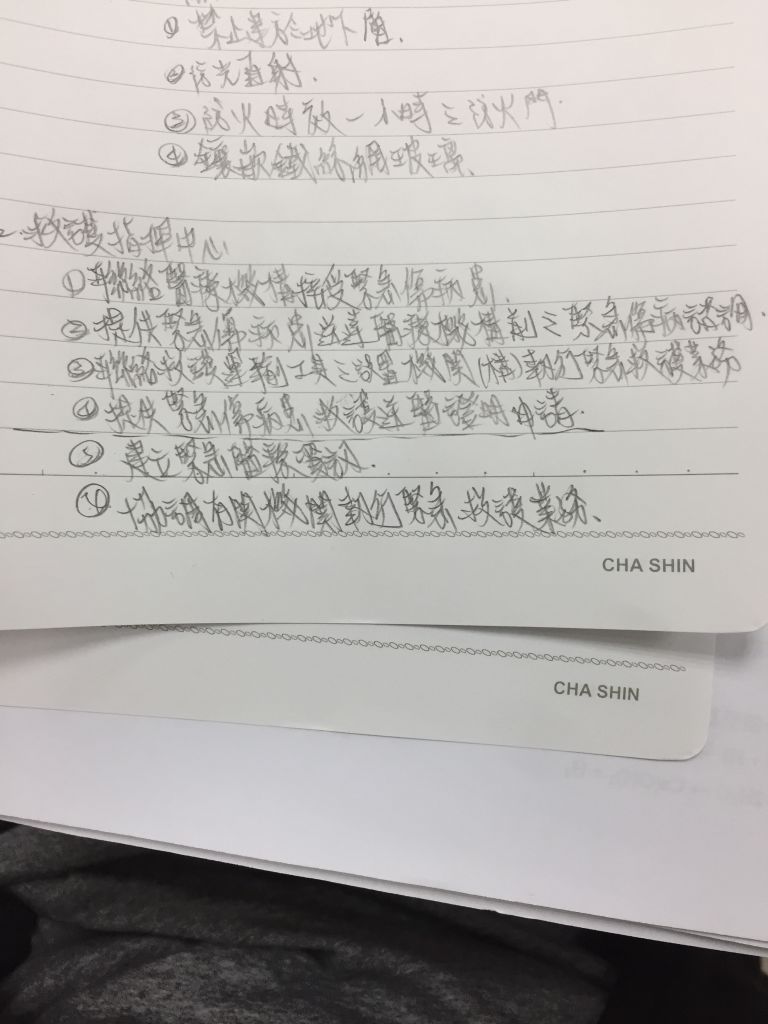 ① 禁止建於地下層.
② 防光直射.
③ 防火時效一小時之防火門.
④ 鑲嵌鐵絲網玻璃.
2. 救護指揮中心
① 聯絡醫療機構接受緊急傷病患.
② 提供緊急傷病患送達醫療機構前之緊急傷病諮詢.
③ 聯絡救護運輸工具之設置機關(構)執行緊急救護業務
④ 提供緊急傷病患救護送醫證明申請.
⑤ 建立緊急醫療資訊.
⑥ 協調有關機關執行緊急救護業務、
CHA SHIN
CHA SHIN